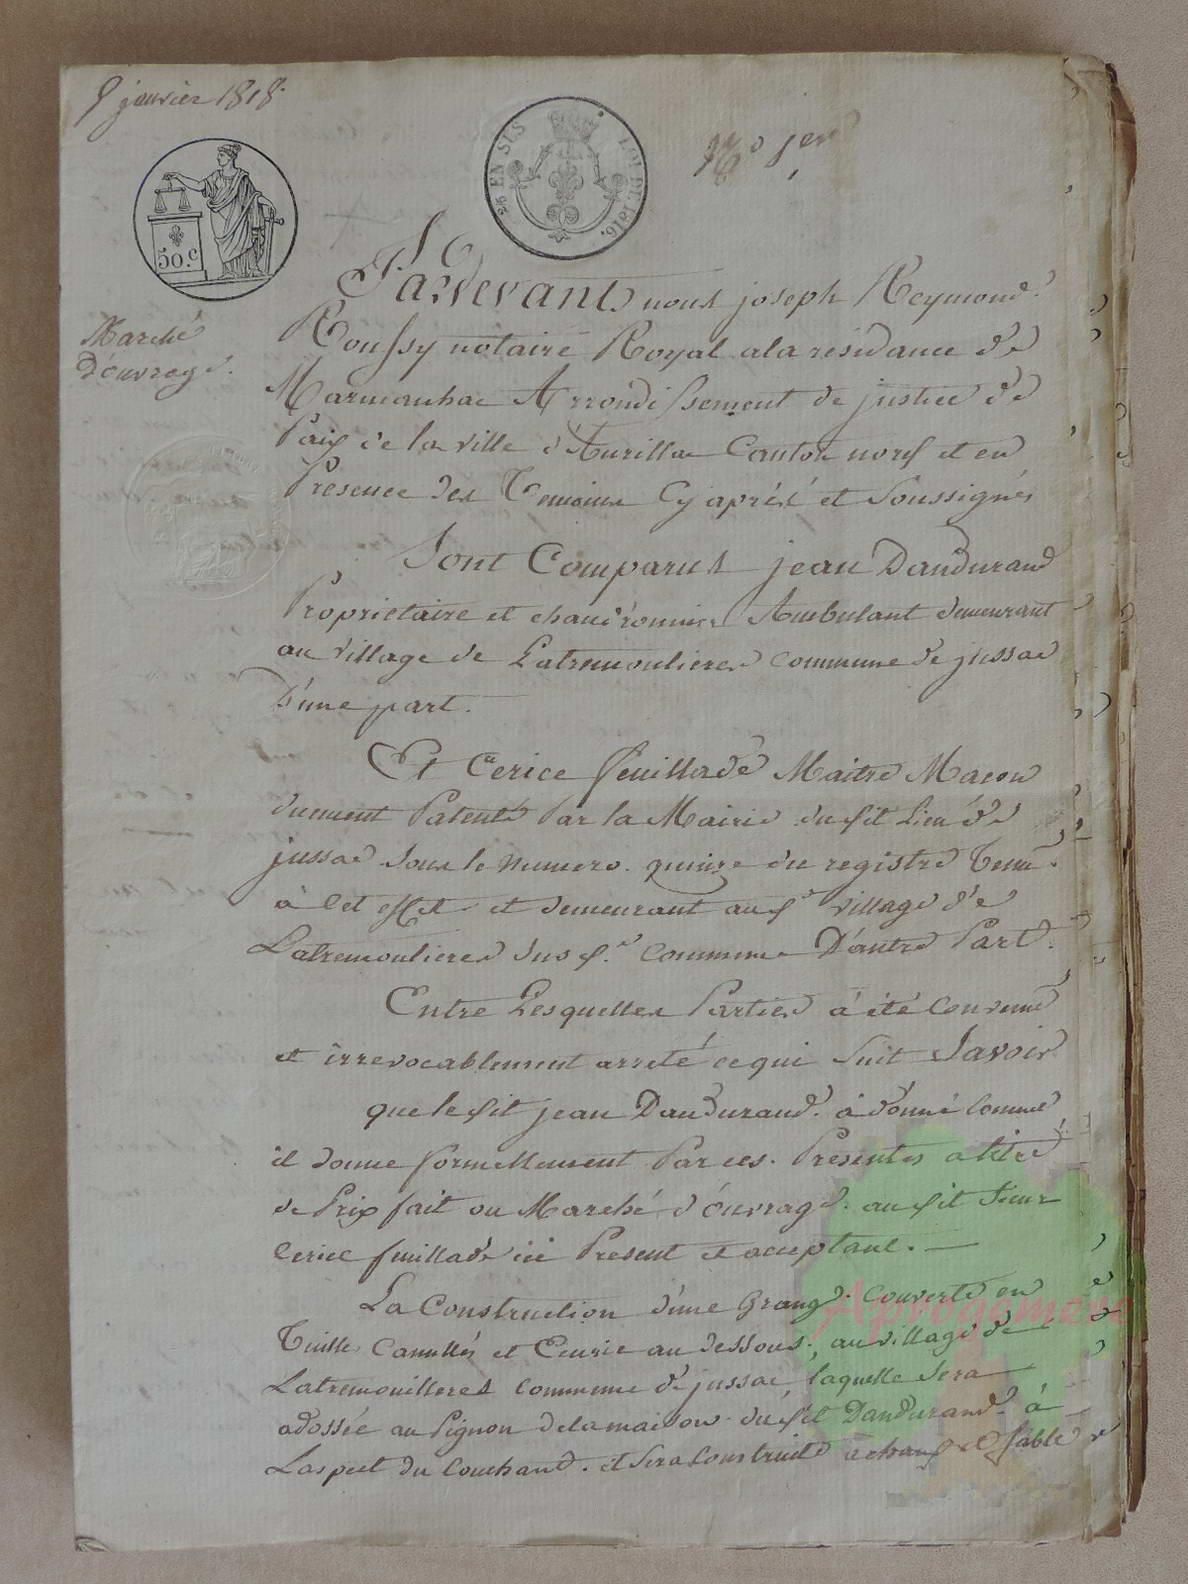 9 janvier 1818.
50.c
25 EN SUS
LOI DE 1816.
Marché
D'ouvrage.
Pardevant nous joseph Reymond
Roussy notaire Royal a la résidance de
Marmanhac Arrondissement de justice de
Paix de la ville d'Aurillac Canton nord et en
Presence des Temoins Cy aprés et Soussignés
Sont Comparus jean Dandurand
Proprietaire et chaudronnier Ambulant demeurant
au village de Latremoulieres commune de jussac
D'une part.
Et Cerice feuillade Maitre Macon
dument Patenté Par la Mairie du dit Lieu de
jussac Sous le numero quinze du registre Tenu
à Cet effet et demeurant au d. village de
Latremoulieres sus d. commune D'autre Part.
Entre Lesquelles Parties à été convenu
et irrevocablement arreté ce qui Suit Savoir
que le dit jean Dandurand à donné comme
il donne formellement Par ces Presentes a titre
de Prix fait ou Marché d'ouvrage au dit Sieur
Cerice feuillade ici Present et acceptant.
La Construction d'une Grange Couverte en
Tuilles Canallés et Ecurie au dessous, au village de
Latremouilleres commune de jussac, laquelle Sera
adossée au Pignon de la maison du dit Dandurand à
L'aspect du Couchand et Sera Construite a chaux et Sable
Aprogemere